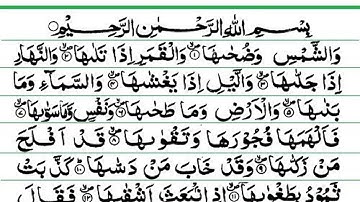 بِسْمِ اللهِ الرَّحْمٰنِ الرَّحِيْمِ
وَالشَّمْسِ وَضُحٰىهَا ۝١ وَالْقَمَرِ اِذَا تَلٰىهَا ۝٢ وَالنَّهَارِ
اِذَا جَلّٰىهَا ۝٣ وَالَّيْلِ اِذَا يَغْشٰىهَا ۝٤ وَالسَّمَآءِ وَمَا
بَنٰىهَا ۝٥ وَالْاَرْضِ وَمَا طَحٰىهَا ۝٦ وَنَفْسٍ وَّمَا سَوّٰىهَا ۝٧
فَاَلْهَمَهَا فُجُوْرَهَا وَتَقْوٰىهَا ۝٨ قَدْ اَفْلَحَ
مَنْ زَكّٰىهَا ۝٩ وَقَدْ خَابَ مَنْ دَسّٰىهَا ۝١٠ كَذَّبَتْ
ثَمُوْدُ بِطَغْوٰىهَا ۝١١ اِذِ انْۢبَعَثَ اَشْقٰىهَا ۝١٢ فَقَالَ